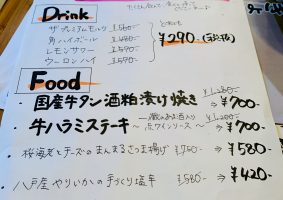 Drink
ザ・プレミアムモルツ ¥580-
角ハイボール ¥480-
レモンサワー ¥480-
ウーロンハイ
どれでも
¥290-(税抜)
Food
・国産牛タン酒粕漬け焼き ¥1,280- ⇒ ¥700-
・牛ハラミステーキ 〜赤ワインソース〜 ¥1,200- ⇒ ¥700-
・桜海老とチーズのまんまるさつま揚げ ¥750- ⇒ ¥580-
・八戸産やりいかの手づくり塩辛 ¥580- ⇒ ¥420-